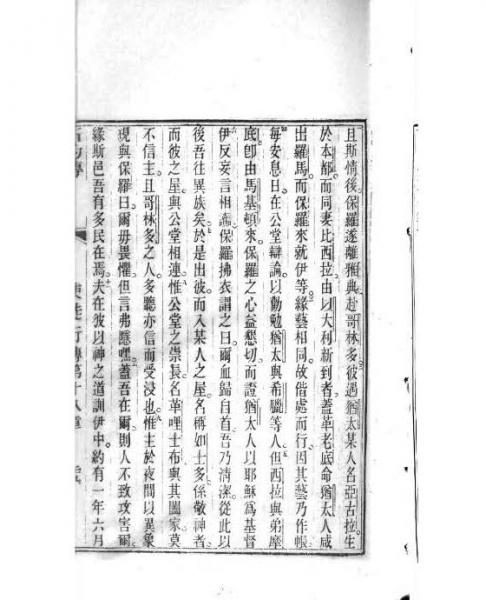 且斯情後保羅遂離獼典赴哥林多彼遇猶太某人名亞古拉生
於本都而同妻比西拉由以大利新到者蓋革老底命猶太人咸
出羅馬而保羅來就伊等緣藝相同故偕處而行因其藝乃作帳
每安息日在公堂辯論以勸勉猶太與希臘等人但西拉與弟摩
底卽由馬基頓來保羅之心益懇切而證猶太人以耶穌爲基督
伊反妄言相保羅拂衣謂之曰爾血歸自首吾乃清潔從此以
後吾往異族矣於是出彼而入某人之屋名稱如士多係敬神者
而彼之屋與公堂相連惟公堂之崇長名革哩士布與其闔家莫
不信主且哥林多之人多聽亦信而受浸也惟主於夜間以異象
現與保羅曰爾毋畏懼但言弗隱嘿蓋吾在爾則人不致攻害爾
緣斯邑吾有多民在焉夫在彼以神之道訓伊中約有一年六月
使徒行傳第十八章